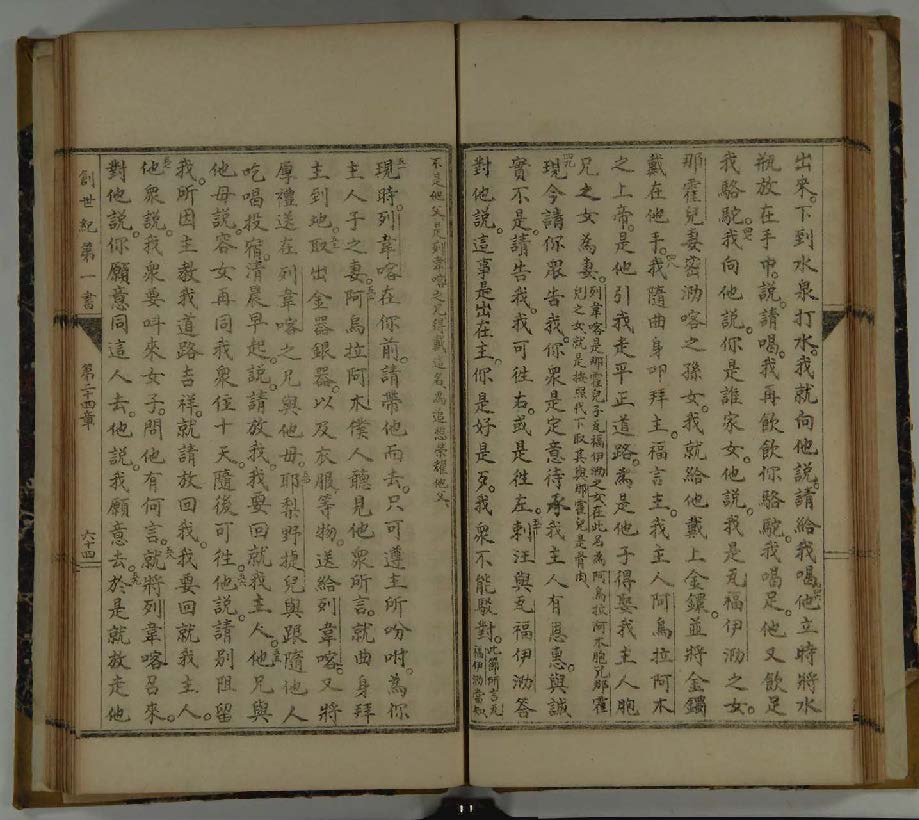 出來。下到水泉打水。我就向他說。請給我喝。他立時將水
瓶放在手中。說。請喝。我再飲飲你駱駝。我喝足。他又飲足
我駱駝。我向他說。你是誰家女。他說。我是瓦福伊泐之女。
那霍兒妻密泐喀之孫女。我就給他戴上金鐶。並將金鐲
戴在他手。我隨曲身叩拜主。福言主。我主人阿烏拉阿木
之上帝。是他引我走平正道路。為是他子得娶我主人胞
兄之女為妻。列韋喀是那霍兒子瓦福伊泐之女在此名為阿烏拉阿木胞兄那霍
兒之女就是按照代下取其與那霍兒是骨肉
現今請你眾告我。你眾是定意待承我主人有恩惠。與誠
實不是。請告我。我可徃右。或是徃左。剌汪與瓦福伊泐答
對他說。這事是出在主。你是好是歹。我眾不能駁對。此節所言瓦
福伊泐當知
不是他父乃是列韋喀之兄得戴這名為追想榮耀他父
現時。列韋喀在你前。請帶他而去。只可遵主所吩咐。為你
主人子之妻。阿烏拉阿木僕人聽見他眾所言。就曲身拜
主到地。取出金器銀器。以及衣服等物。送給列韋喀。又將
厚禮送在列韋喀之兄與他母。耶梨野捷兒與跟隨他人
吃喝投宿。清晨早起。說。請放我。我要回就我主人。他兄與
他母說。容女再同我眾住十天。隨後可徃。他說。請別阻留
我。所因主教我道路吉祥。就請放回我。我要回就我主人。
他眾說。我眾要呌來女子。問他有何言。就將列韋喀召來。
對他說。你願意同這人去。他說。我願意去。於是就放走他
創世紀第一書
第二十四章
六十四